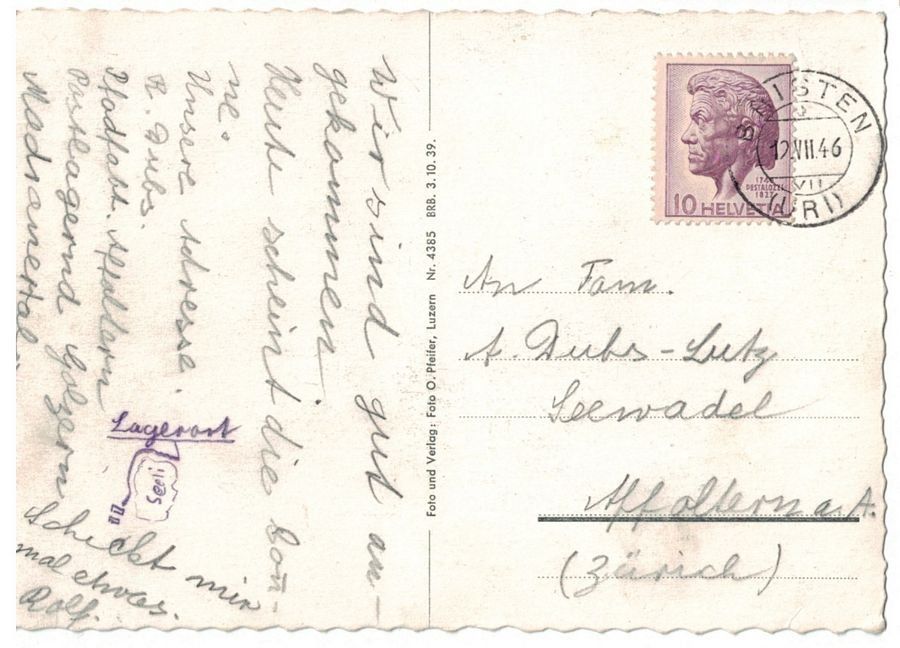 Wir sind gut an-
gekommen.
Heute scheint die Son-
ne.
Unsere Adresse.
R. Dubs
Pfadfabt. Affoltern
Postlagernd Golzern
Madranertal
Schickt mir
mal etwas.
Rolf.
Lagerort
Seeli
Foto und Verlag: Foto O. Pfeifer, Luzern Nr. 4385 BRB. 3.10.39.
1746
PESTALOZZI
1827
10 HELVETIA
BRISTEN
12.VII.46
VII
(URI)
An Fam.
A. Dubs-Lutz
Seewadel
Affoltern a. A.
(Zürich)